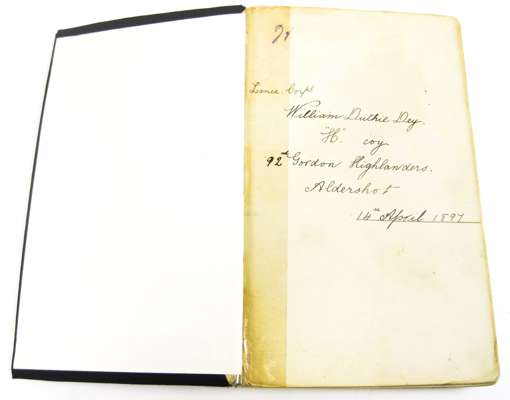 Lance Corpl
William Duthie Dey.
"H". coy
92nd Gordon Highlanders.
Aldershot
14th April 1897